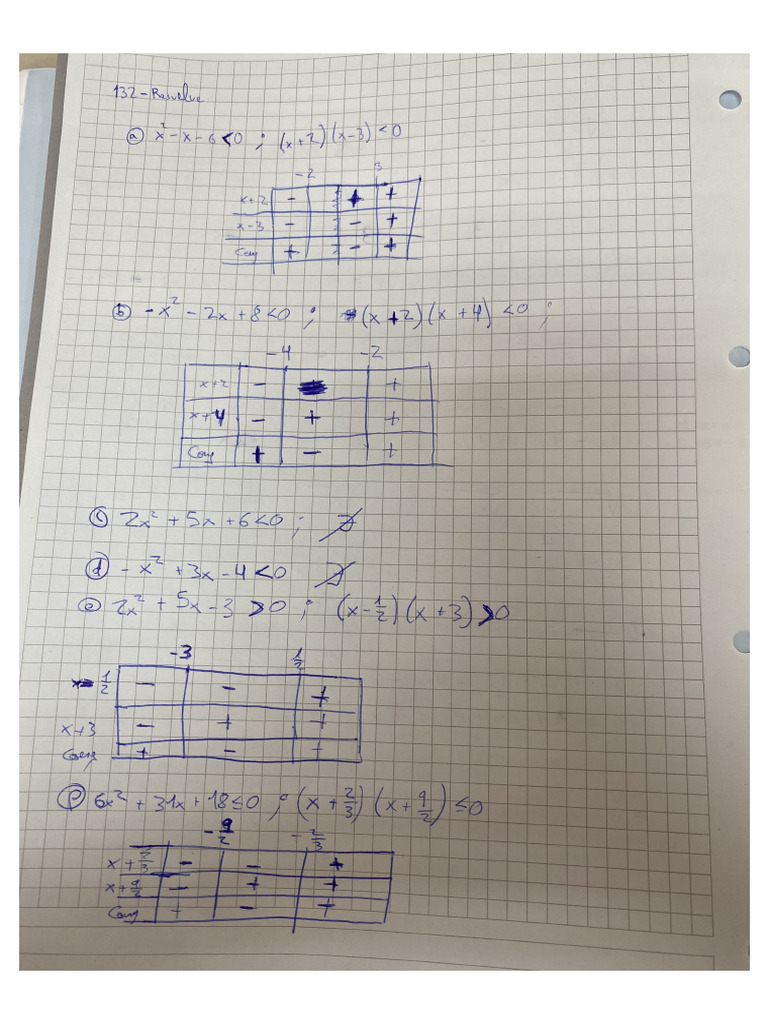 132-Resuelve
a) x² - x - 6 < 0 ; (x+2)(x-3) < 0
-2 3
x+2 - + +
x-3 - - +
+ - +
b) -x² - 2x + 8 < 0 ; (x+2)(x+4) < 0 ;
-4 -2
x+2 - +
x+4 - + +
+ - +
c) 2x² + 5x + 6 < 0 ; ∄
d) -x² + 3x - 4 < 0 ∄
e) 2x² + 5x - 3 > 0 ; (x - 1/2)(x + 3) > 0
-3 1/2
x - 1/2 - - +
x+3 - + +
+ - +
f) 6x² + 31x + 18 ≤ 0 ; (x + 2/3)(x + 9/2) ≤ 0
-9/2 -2/3
x + 2/3 - - +
x + 9/2 - + +
+ - +